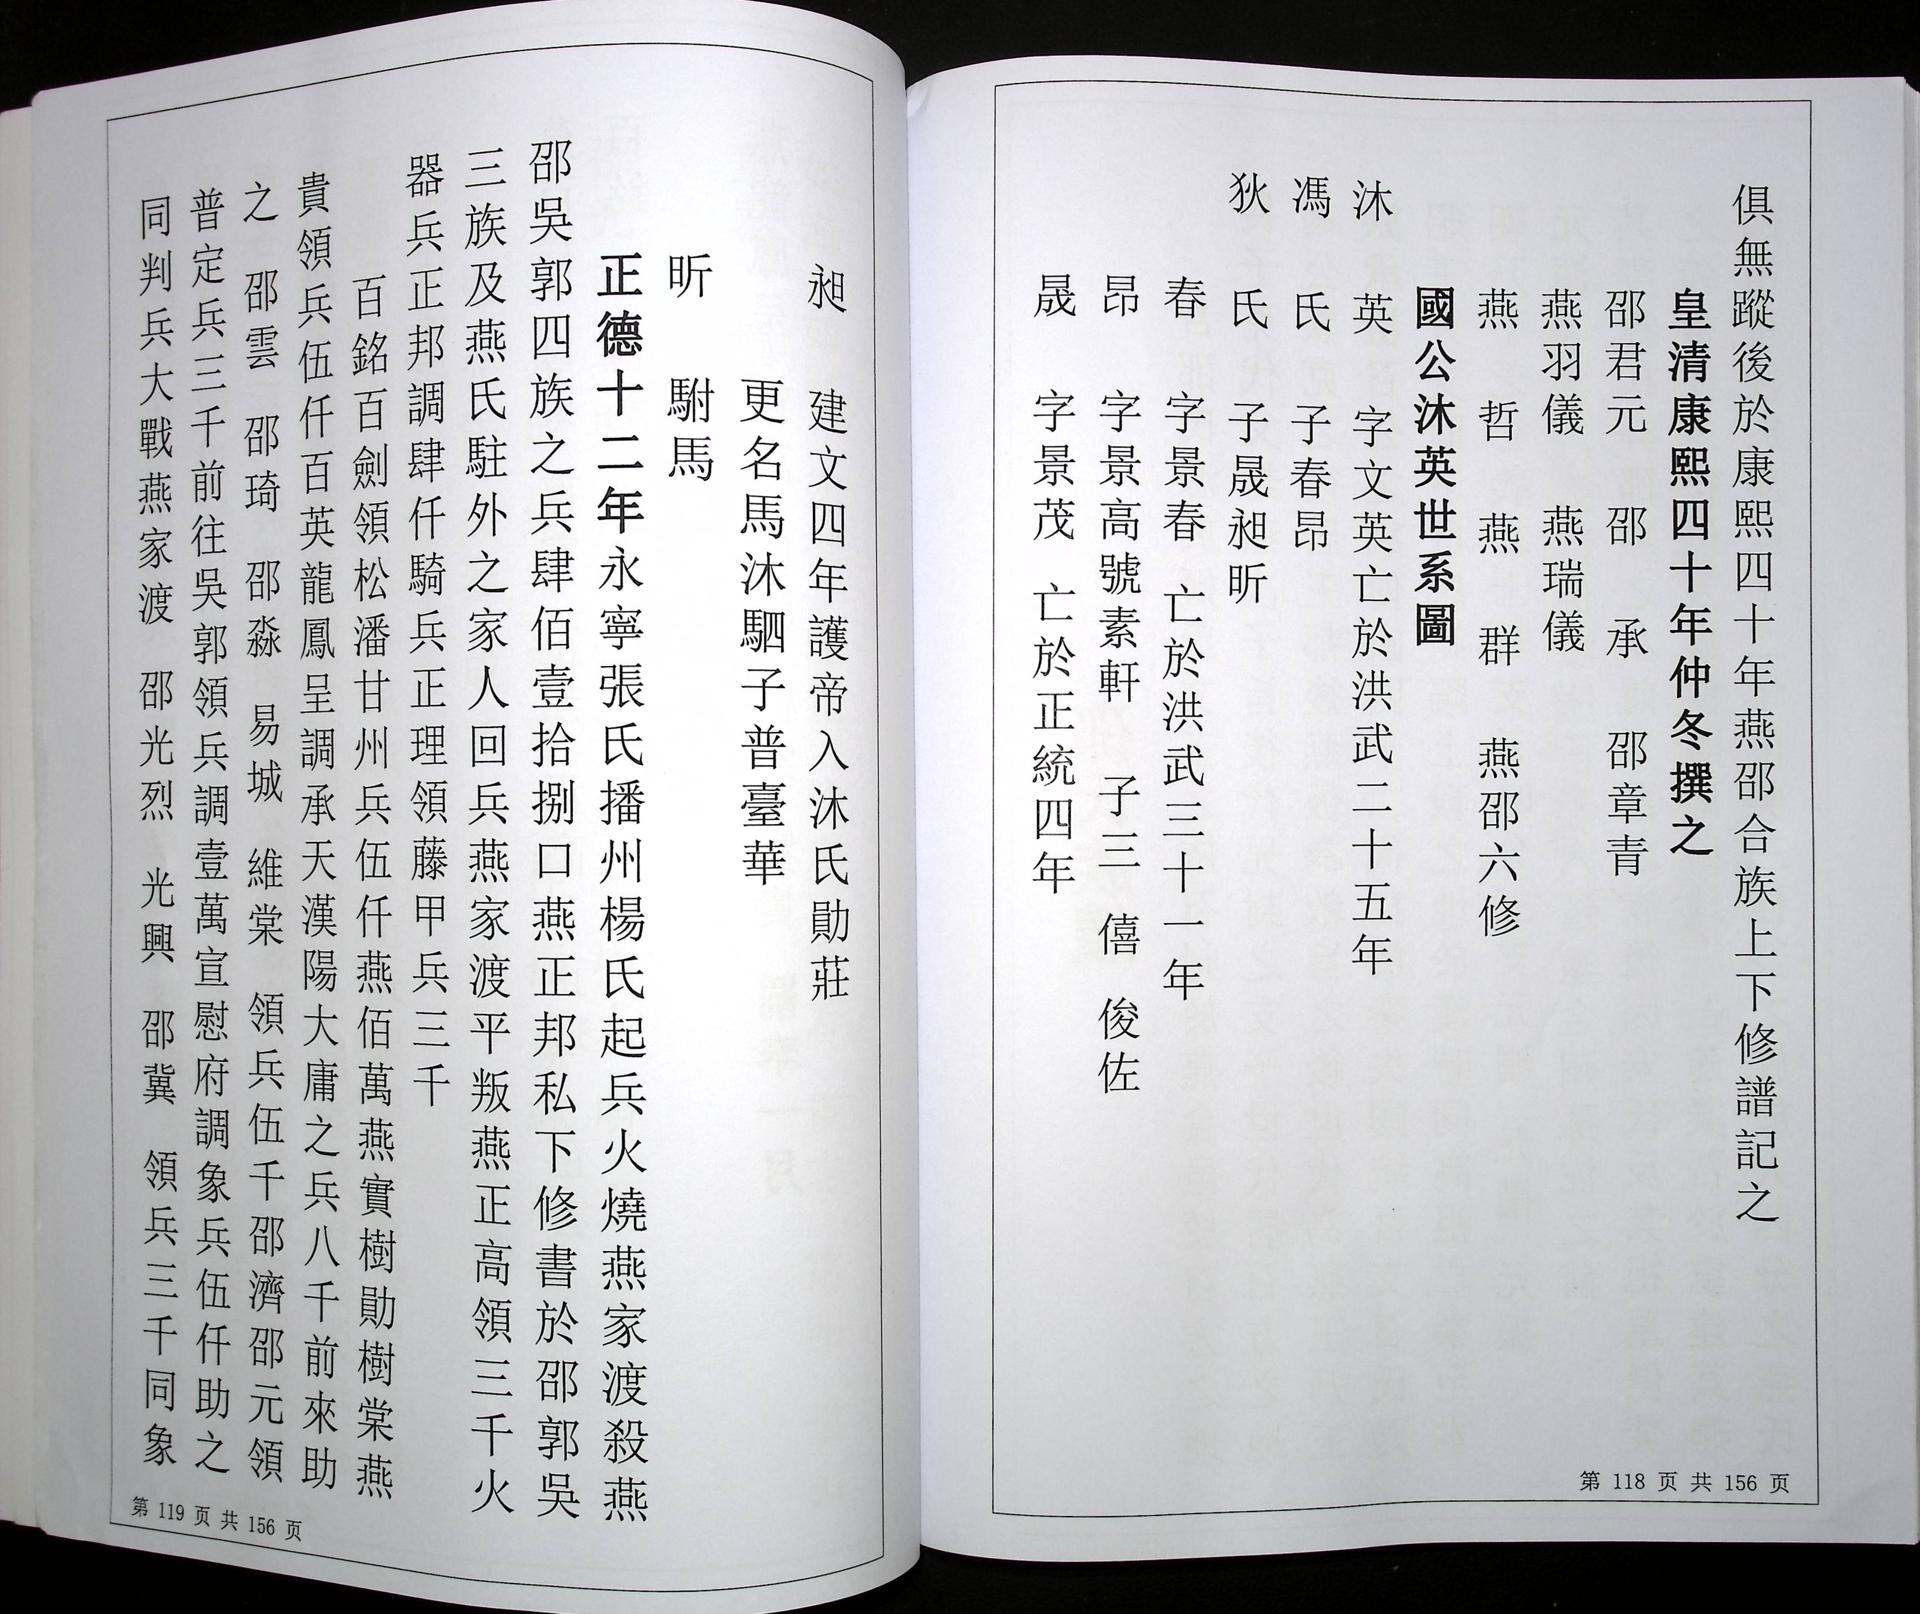 俱無蹤後於康熙四十年燕邵合族上下修譜記之
皇清康熙四十年仲冬撰之
邵君元 邵 承 邵章青
燕羽儀 燕瑞儀
燕 哲 燕 群 燕邵六修
國公沐英世系圖
沐 英 字文英亡於洪武二十五年
馮 氏 子春昂
狄 氏 子晟昶昕
春 字景春 亡於洪武三十一年
昂 字景高號素軒 子三 僖 俊佐
晟 字景茂 亡於正統四年
第 118 页 共 156 页
昶 建文四年護帝入沐氏勛莊
更名馬沐駟子普臺華
昕 駙馬
正德十二年永寧張氏播州楊氏起兵火燒燕家渡殺燕
邵吳郭四族之兵肆佰壹拾捌口燕正邦私下修書於邵郭吳
三族及燕氏駐外之家人回兵燕家渡平叛燕正高領三千火
器兵正邦調肆仟騎兵正理領藤甲兵三千
百銘百劍領松潘甘州兵伍仟燕佰萬燕實樹勛樹棠燕
貴領兵伍仟百英龍鳳呈調承天漢陽大庸之兵八千前來助
之 邵雲 邵琦 邵淼 易城 維棠 領兵伍千邵濟邵元領
普定兵三千前往吳郭領兵調壹萬宣慰府調象兵伍仟助之
同判兵大戰燕家渡 邵光烈 光興 邵冀 領兵三千同象
第 119 页 共 156 页